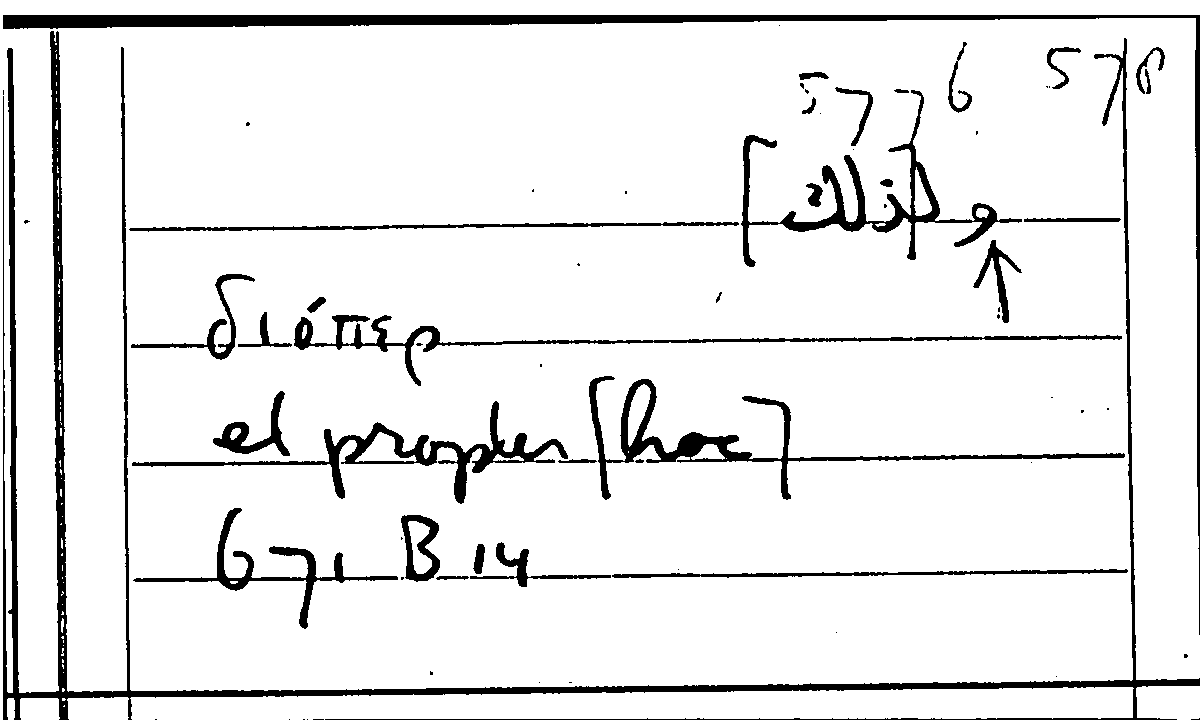 577 6 578
و [لذلك]
διόπερ
et propter [hoc]
671 B 14